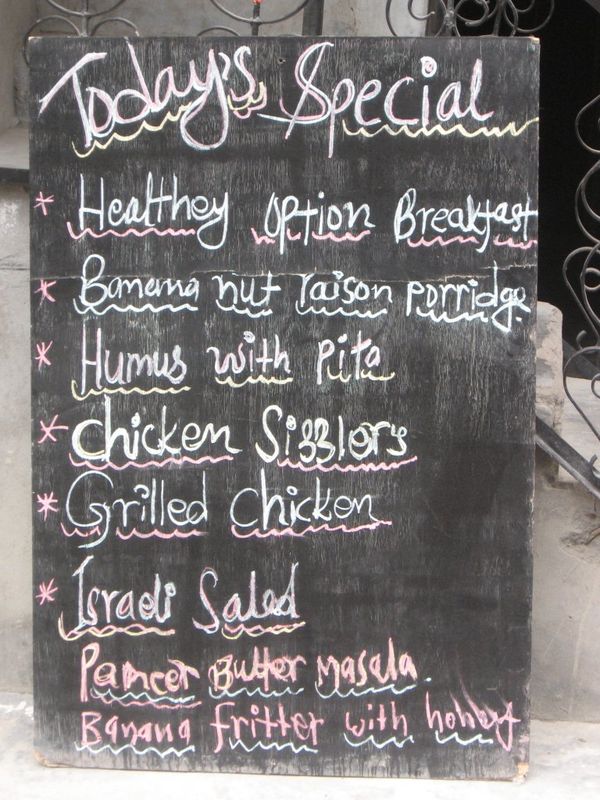 Today's Special
* Healthey Option Breakfast
* Banana nut raison porridge
* Humus with Pita
* Chicken Sizzlers
* Grilled Chicken
* Israeli Salad
Paneer Butter Masala.
Banana fritter with